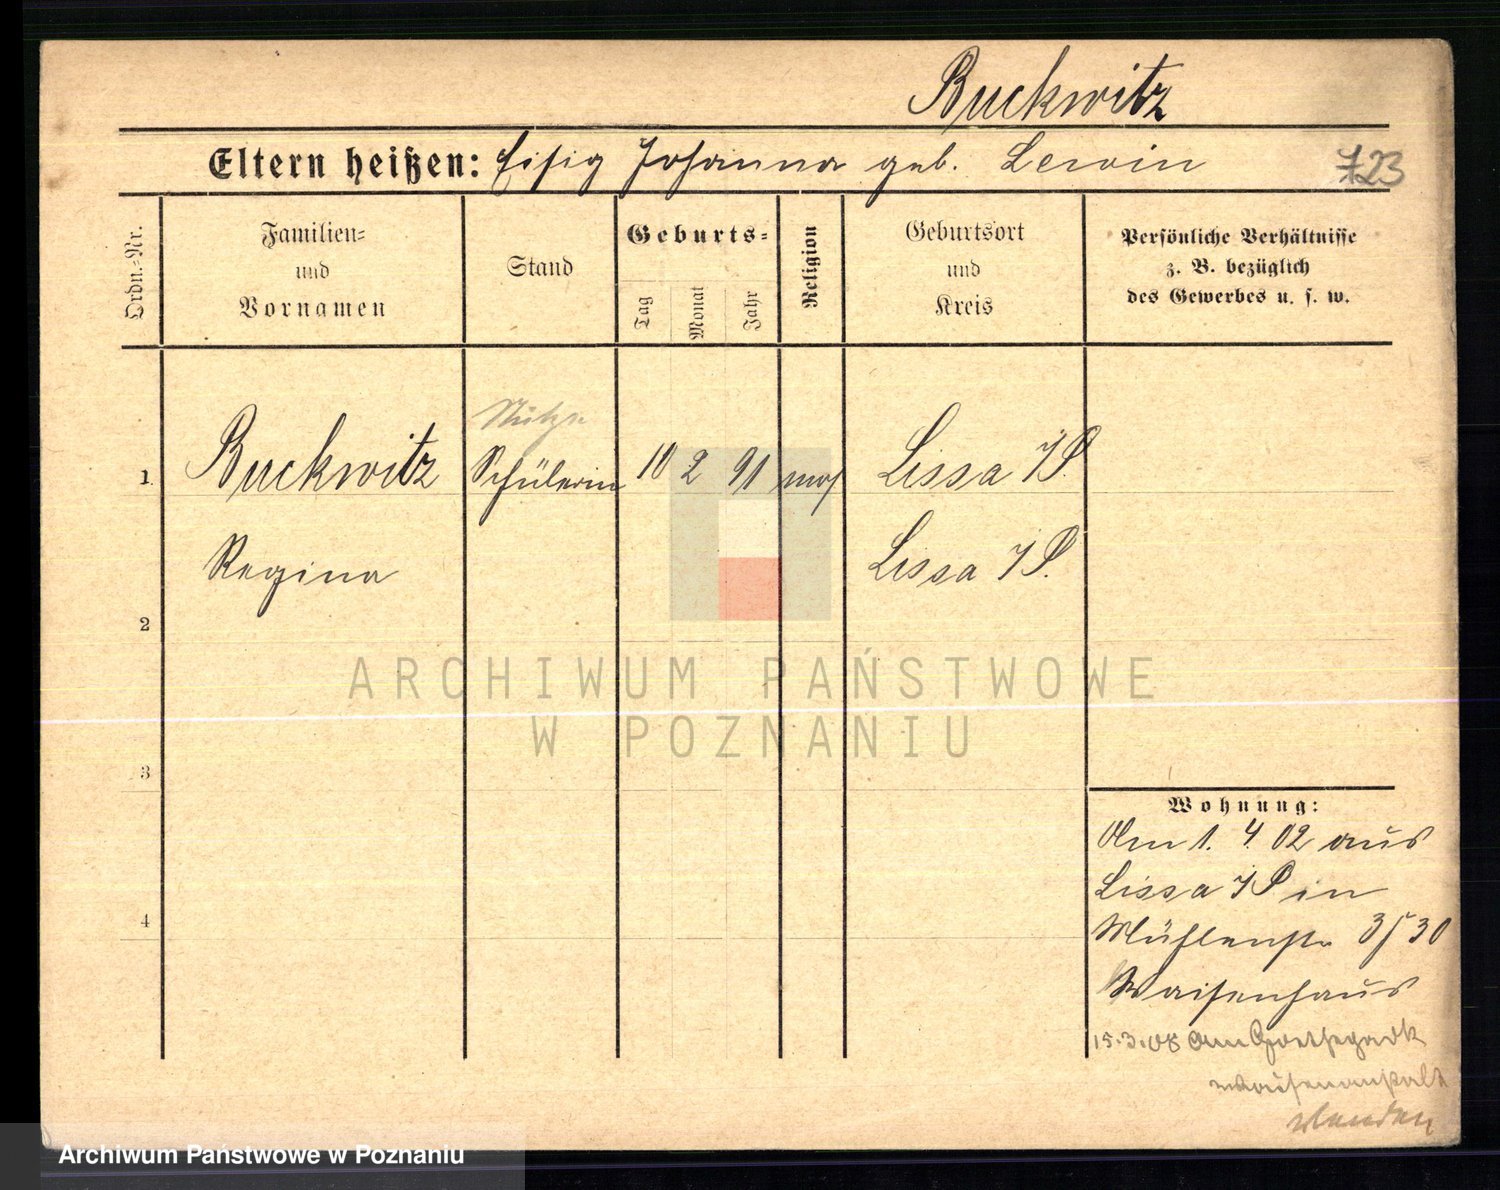 Buckwitz
Eltern heißen: Eisig Johanna geb. Lewin 723
Ordn.-Nr.
Familien-
und
Vornamen
Stand
Geburts-
Tag
Monat
Jahr
Religion
Geburtsort
und
Kreis
Persönliche Verhältnisse
z. B. bezüglich
des Gewerbes u. s. w.
Stütze
1 Buckwitz Schülerin 10 2 91 mos Lissa i/P.
Regina Lissa i/P.
2
ARCHIWUM PAŃSTWOWE
W POZNANIU
3
Wohnung:
Am 1. 4. 02 aus
Lissa i/P in
4
Mühlenstr 3/30
Waisenhaus
15.3.08 Am Goethepark
Waisenanstalt
Archiwum Państwowe w Poznaniu